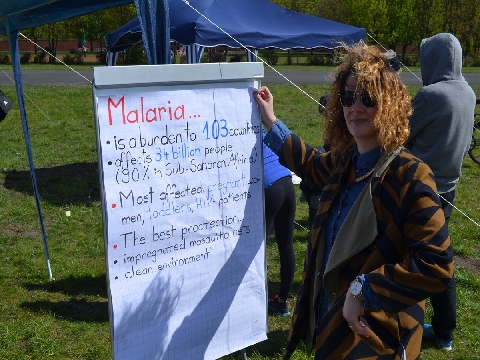 Malaria...
• is a burden to 103 countries
• affects 3.4 billion people
(90% in Sub-Saharan Africa)
• Most affected: pregnant wo-
men, toddlers, HIV patients
• The best protection:
• impregnated mosquito nets
• clean environment